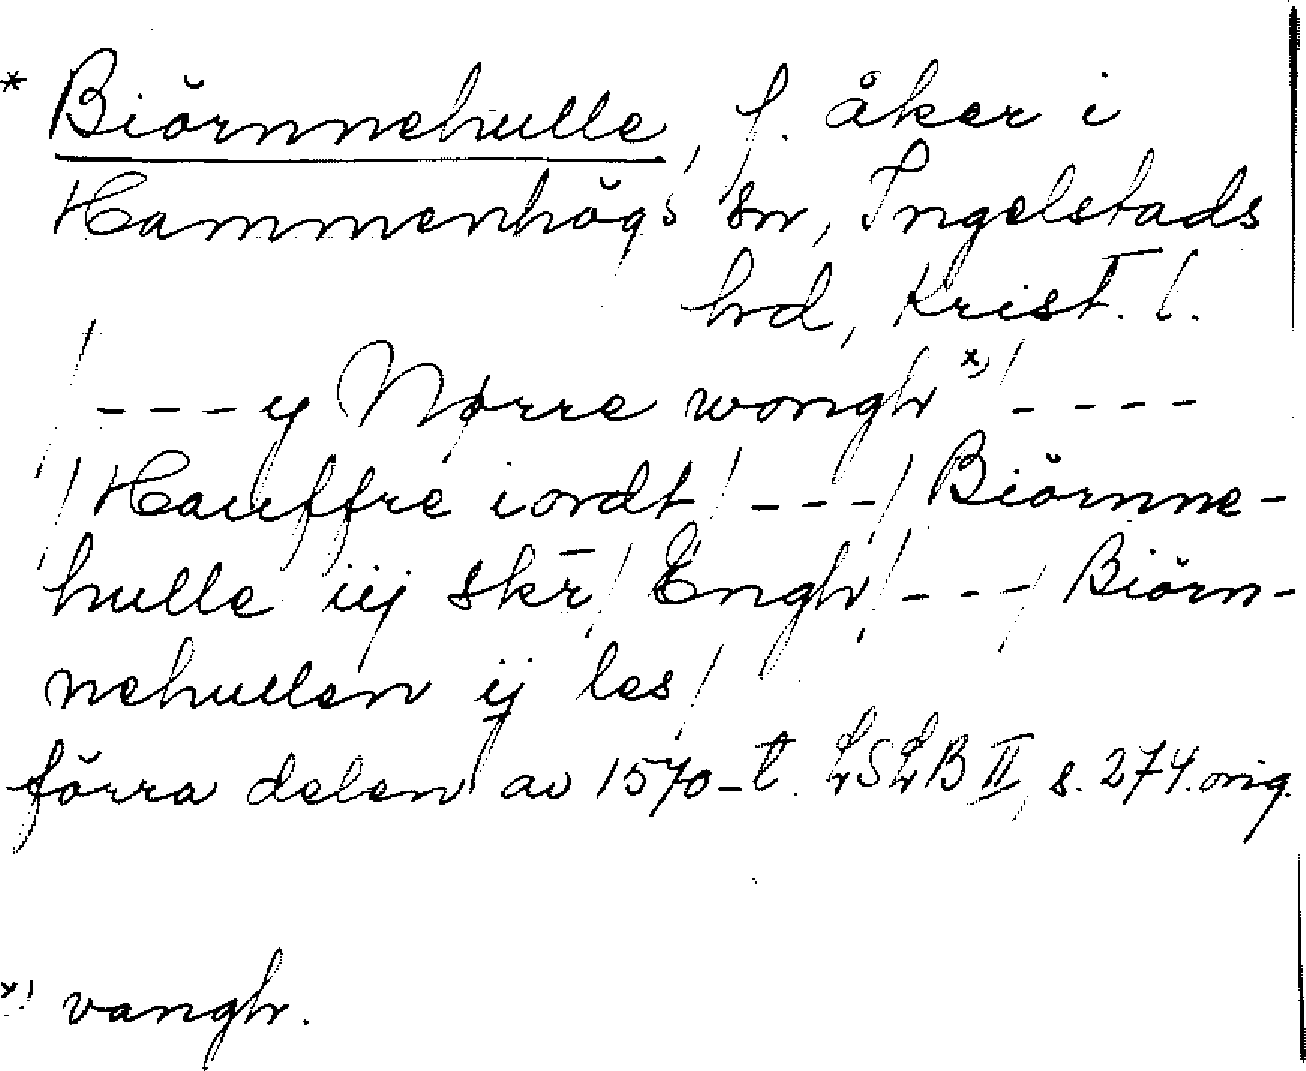 * Biörnnehulle, f. åker i
Hammenhögs sn, Ingelstads
hd, Krist. l.
/ - - - y Nørre wongh *) / - - - -
/ Hauffre iordt / - - - / Biörnne-
hulle iij skr̄ / Engh / - - - / Biörn-
nehullen ij les /
förra delen av 1570-t. LSLB II, s. 274. orig.
*) vangh.